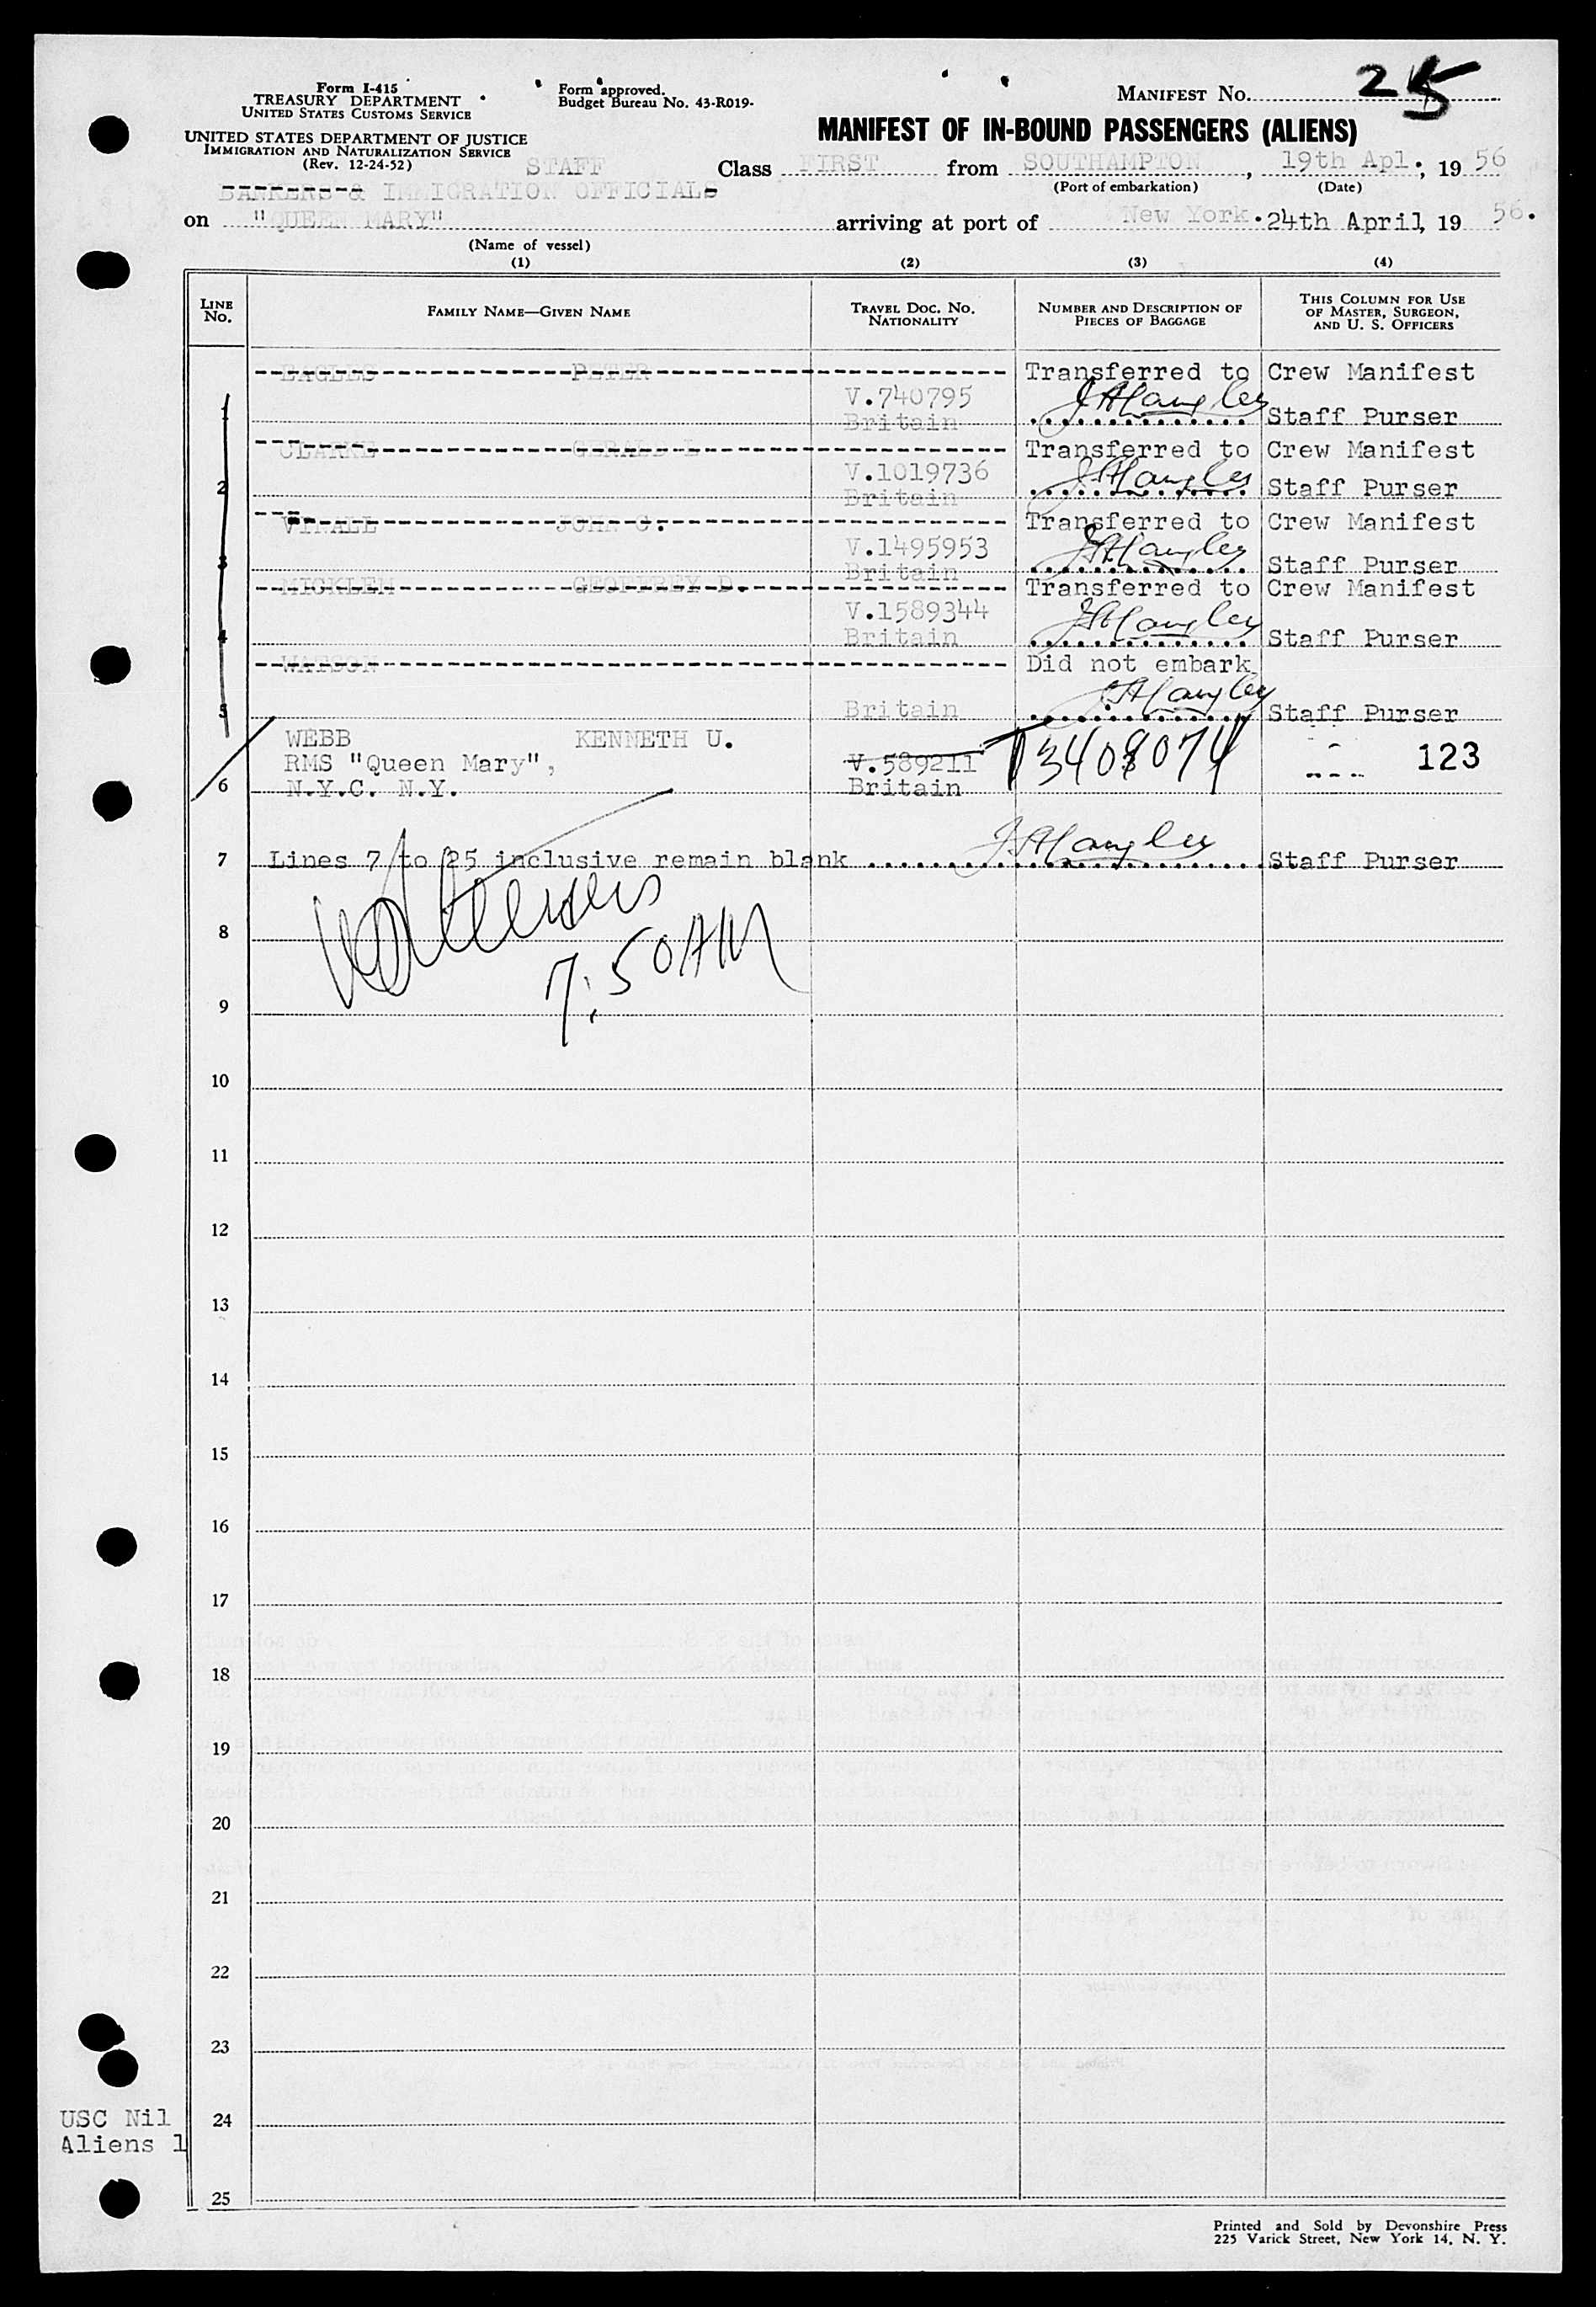 Form I-415
TREASURY DEPARTMENT
UNITED STATES CUSTOMS SERVICE
Form approved.
Budget Bureau No. 43-R019-
MANIFEST No. 25
UNITED STATES DEPARTMENT OF JUSTICE
IMMIGRATION AND NATURALIZATION SERVICE
(Rev. 12-24-52)
MANIFEST OF IN-BOUND PASSENGERS (ALIENS)
STAFF Class FIRST from SOUTHAMPTON, 19th Apl., 19 56
(Port of embarkation) (Date)
BANKERS & IMMIGRATION OFFICIALS
on "QUEEN MARY" arriving at port of New York. 24th April, 19 56.
(Name of vessel)
(1) (2) (3) (4)
LINE No. FAMILY NAME—GIVEN NAME TRAVEL DOC. NO. NATIONALITY NUMBER AND DESCRIPTION OF PIECES OF BAGGAGE THIS COLUMN FOR USE OF MASTER, SURGEON, AND U. S. OFFICERS
EAGLES PETER Transferred to Crew Manifest
V.740795
1 Britain Staff Purser
CLARKE GERALD L Transferred to Crew Manifest
V.1019736
2 Britain Staff Purser
VIRALL JOHN C. Transferred to Crew Manifest
V.1495953
3 Britain Staff Purser
MICKLEM GEOFFREY D. Transferred to Crew Manifest
V.1589344
4 Britain Staff Purser
WATSON Did not embark
5 Britain Staff Purser
WEBB KENNETH U.
RMS "Queen Mary", V.589211 123
6 N.Y.C. N.Y. Britain
7 Lines 7 to 25 inclusive remain blank Staff Purser
8
7:50AM
9
10
11
12
13
14
15
16
17
18
19
20
21
22
23
USC Nil 24
Aliens 1
25
Printed and Sold by Devonshire Press
225 Varick Street, New York 14, N. Y.